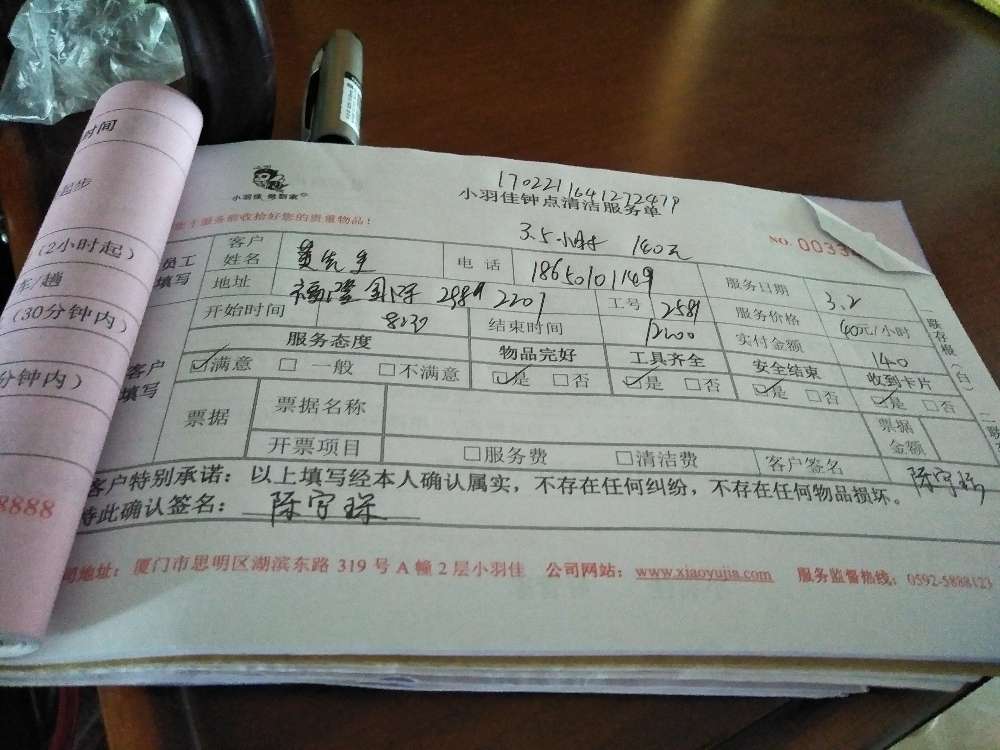 时间
(2小时起)
车/趟
(30分钟内)
分钟内)
8888
1702211641272479
小羽佳钟点清洁服务单
服务前收拾好您的贵重物品!
3.5小时 140元
NO. 0033
员工填写
客户姓名 黄先生 电话 18650101149 服务日期 3.2
地址 2201 工号 2589 服务价格 40元/小时
开始时间 8:30 结束时间 12:00 实付金额 140
客户填写
服务态度 物品完好 工具齐全 安全结束 收到卡片
☑满意 □一般 □不满意 ☑是 □否 ☑是 □否 ☑是 □否 ☑是 □否
票据 票据名称 票据金额
开票项目 □服务费 □清洁费 客户签名
客户特别承诺:以上填写经本人确认属实,不存在任何纠纷,不存在任何物品损坏。
特此确认签名:
地址:厦门市思明区湖滨东路 319 号 A 幢 2 层小羽佳 公司网站:www.xiaoyujia.com 服务监督热线:0592-5888123